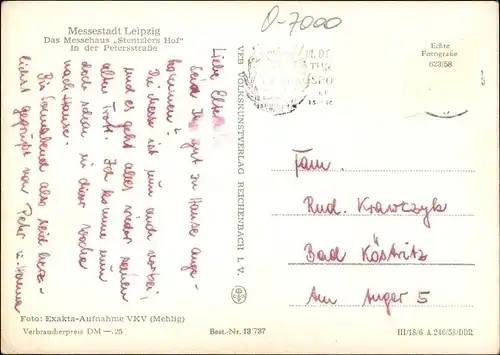 Messestadt Leipzig
Das Messehaus „Stentzlers Hof“
in der Petersstraße
O-7000
Echte
Fotografie
623/58
Liebe
Seid Ihr gut zu Hause ange-
kommen?
Die Messe ist nun auch vorbei
und es geht alles wieder seinen
alten Trott. Ich komme nun
doch schon in dieser Woche
nach Hause.
Bis Sonnabend also seid herz-
lichst gegrüßt von Peter u. Hanna
VEB VOLKSKUNSTVERLAG REICHENBACH I. V.
Fam.
Rud. Krawczyk
Bad Köstritz
Am Anger 5
Foto: Exakta-Aufnahme VKV (Mehlig)
Verbraucherpreis DM —.25
Best.-Nr. 13 737
III/18/6 A 246/58/DDR